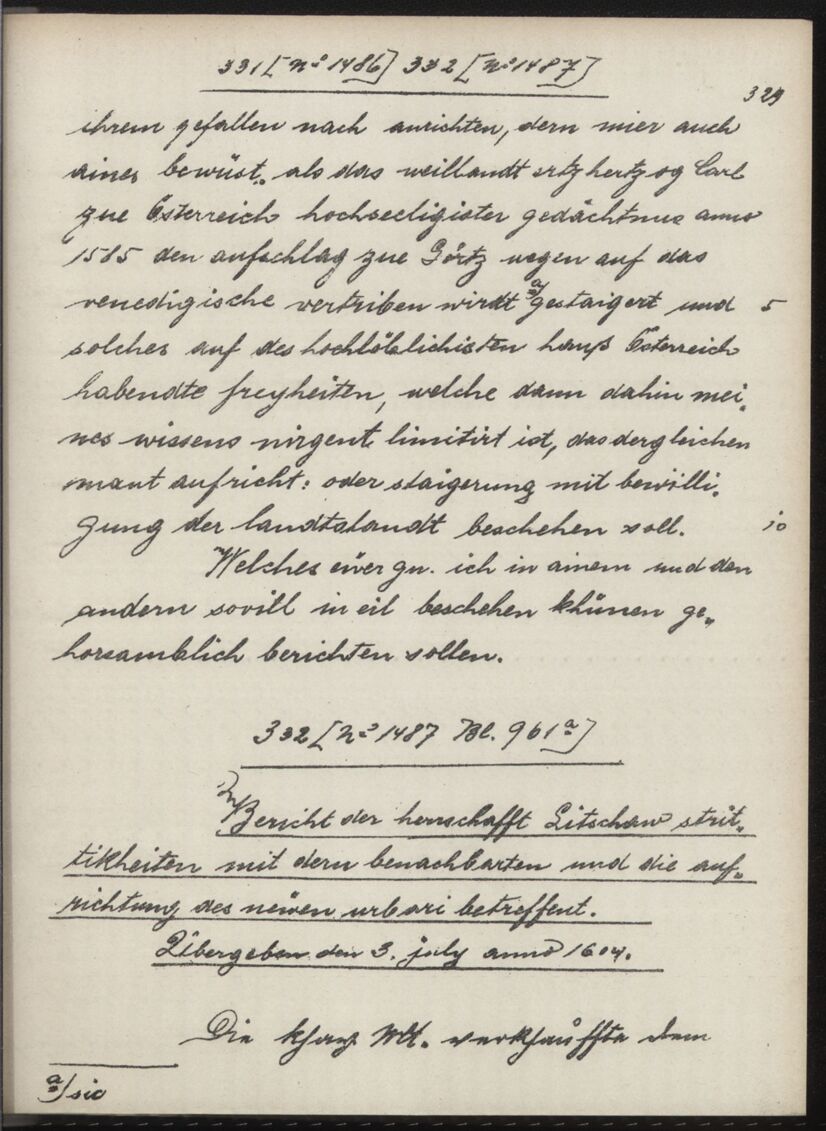 331 [No 1486] 332 [No 1487]
329
ihrem gefallen nach anrichten, dern mier auch
aines bewüst, als das weillandt ertzhertzog Carl
zue Österreich hochseeligister gedächtnus anno
1585 den aufschlag zue Görtz wegen auf das
venedigische vertriben wirdt a) gestaigert und 5
solches auf des hochlöblichisten hauß Österreich
habendte freyheiten, welche dann dahin mei„
nes wissens nirgent limitirt ist, das dergleichen
maut aufricht: oder staigerung mit bewilli„
gung der landtslandt beschehen soll. 10
Welches eüer gn. ich in ainem und den
andern sovill in eil beschehen khünen ge„
horsamblich berichten sollen.
332 [No 1487 Bl. 961a]
Bericht der herrschafft Litschaw strit„
tikheiten mit dern benachbarten und die auf„
richtung des neüen urbari betreffent.
Übergeben den 3. july anno 1604.
Die khay. Mt. verkhauffte dem
a) sic